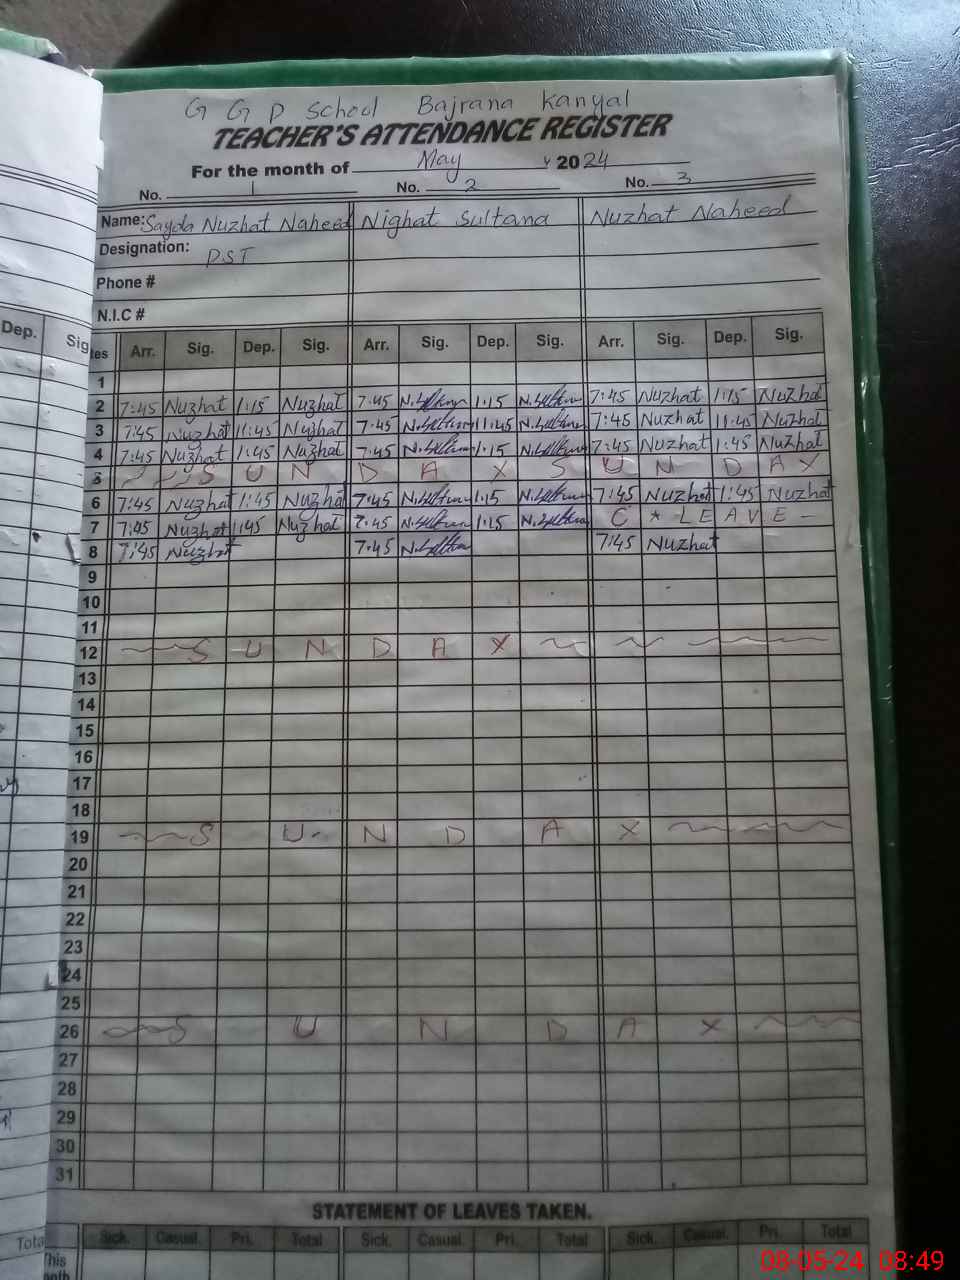 G G P School Bajrana Kanyal
TEACHER'S ATTENDANCE REGISTER
For the month of May 2024
No. 1 No. 2 No. 3
Name: Sayda Nuzhat Naheed Nighat Sultana Nuzhat Naheed
Designation: PST
Phone #
N.I.C #
Dep. Sig
tes Arr. Sig. Dep. Sig. Arr. Sig. Dep. Sig. Arr. Sig. Dep. Sig.
1
2 7:45 Nuzhat 1:15 Nuzhat 7:45 N.Sultana 1:15 N.Sultana 7:45 Nuzhat 1:15 Nuzhat
3 7:45 Nuzhat 11:45 Nuzhat 7:45 N.Sultana 11:45 N.Sultana 7:45 Nuzhat 11:45 Nuzhat
4 7:45 Nuzhat 1:45 Nuzhat 7:45 N.Sultana 1:15 N.Sultana 7:45 Nuzhat 1:45 Nuzhat
5 S U N D A Y S U N D A Y
6 7:45 Nuzhat 1:45 Nuzhat 7:45 N.Sultana 1:15 N.Sultana 7:45 Nuzhat 1:45 Nuzhat
7 7:45 Nuzhat 1:45 Nuzhat 7:45 N.Sultana 1:15 N.Sultana C * L E A V E -
8 7:45 Nuzhat 7:45 N.Sultana 7:45 Nuzhat
9
10
11
12 S U N D A Y
13
14
15
16
17
18
19 S U N D A Y
20
21
22
23
24
25
26 S U N D A Y
27
28
29
30
31
STATEMENT OF LEAVES TAKEN.
Tota Sick. Casual. Pri. Total Sick. Casual. Pri. Total Sick. Casual. Pri. Total
This
onth
08-05-24 08:49